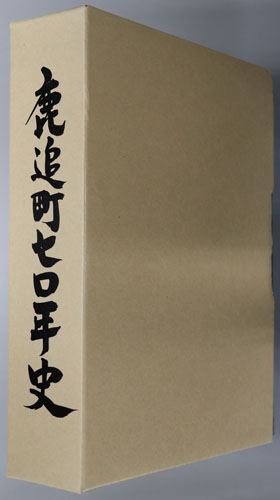 鹿追町七〇年史